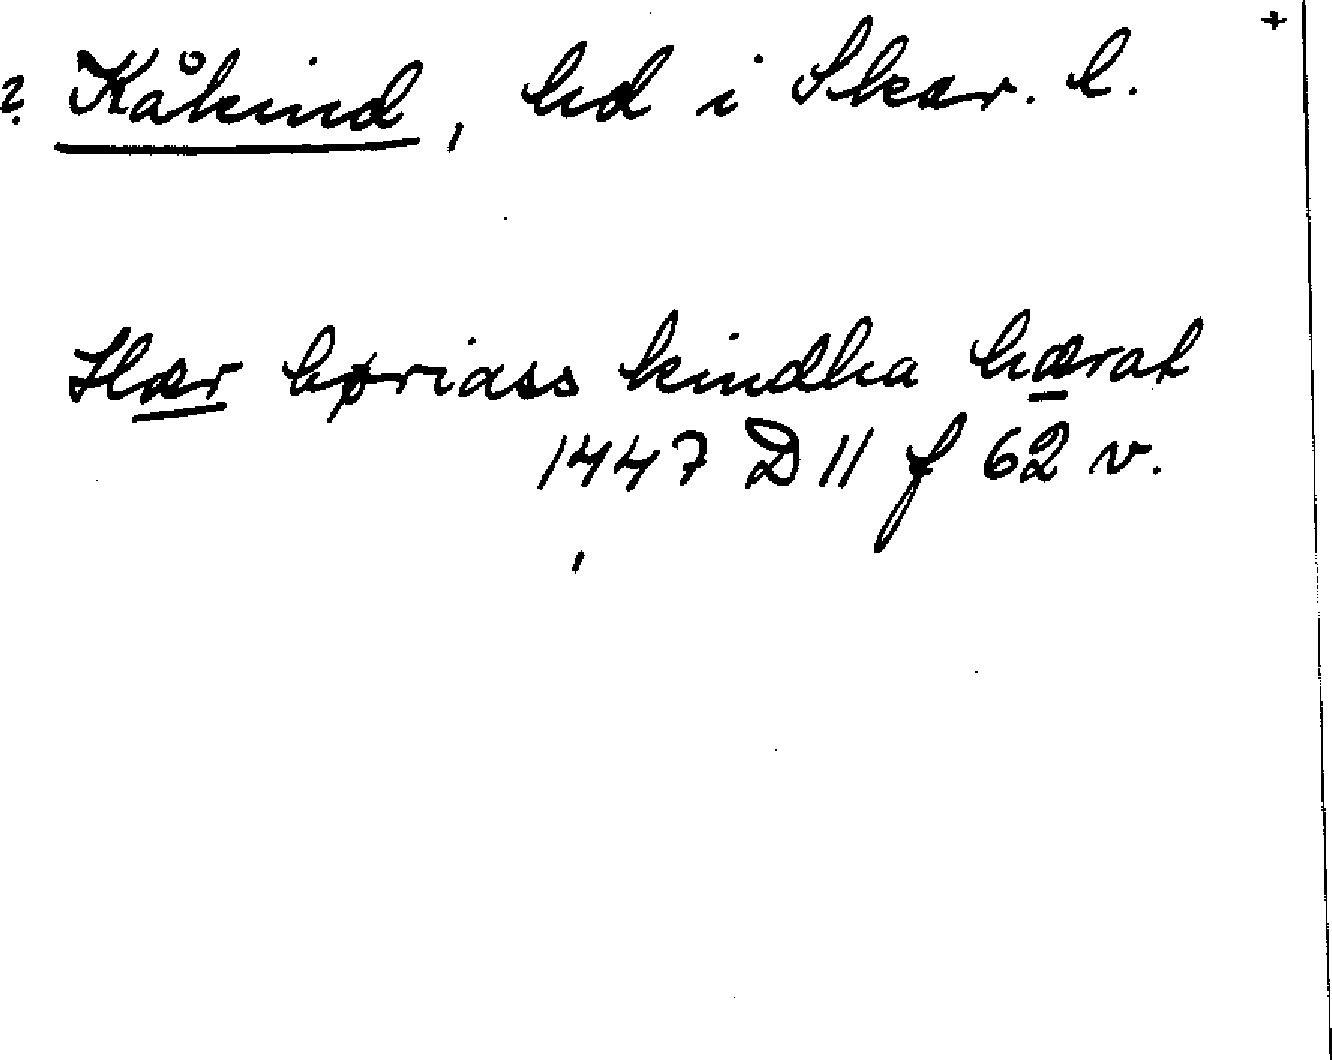 ? Kåkind, hd i Skar. l. +
Hær børiass kindha hærat
1447 D 11 f 62 v.